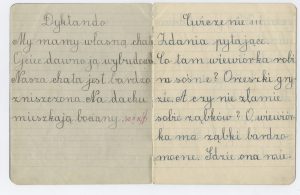 Dyktando
My mamy własną chatę
Ojciec dawno ją wybudował
Nasza chata jest bardzo
zniszczona Na dachu
mieszkają bociany.
Ćwiczenie
Zdania pytające.
Co tam wiewiórka robi
na sośnie? Orzeszki gry-
zie. A czy nie złamie
sobie ząbków? O, wiewiór-
ka ma ząbki bardzo
mocne. Gdzie ona mie-